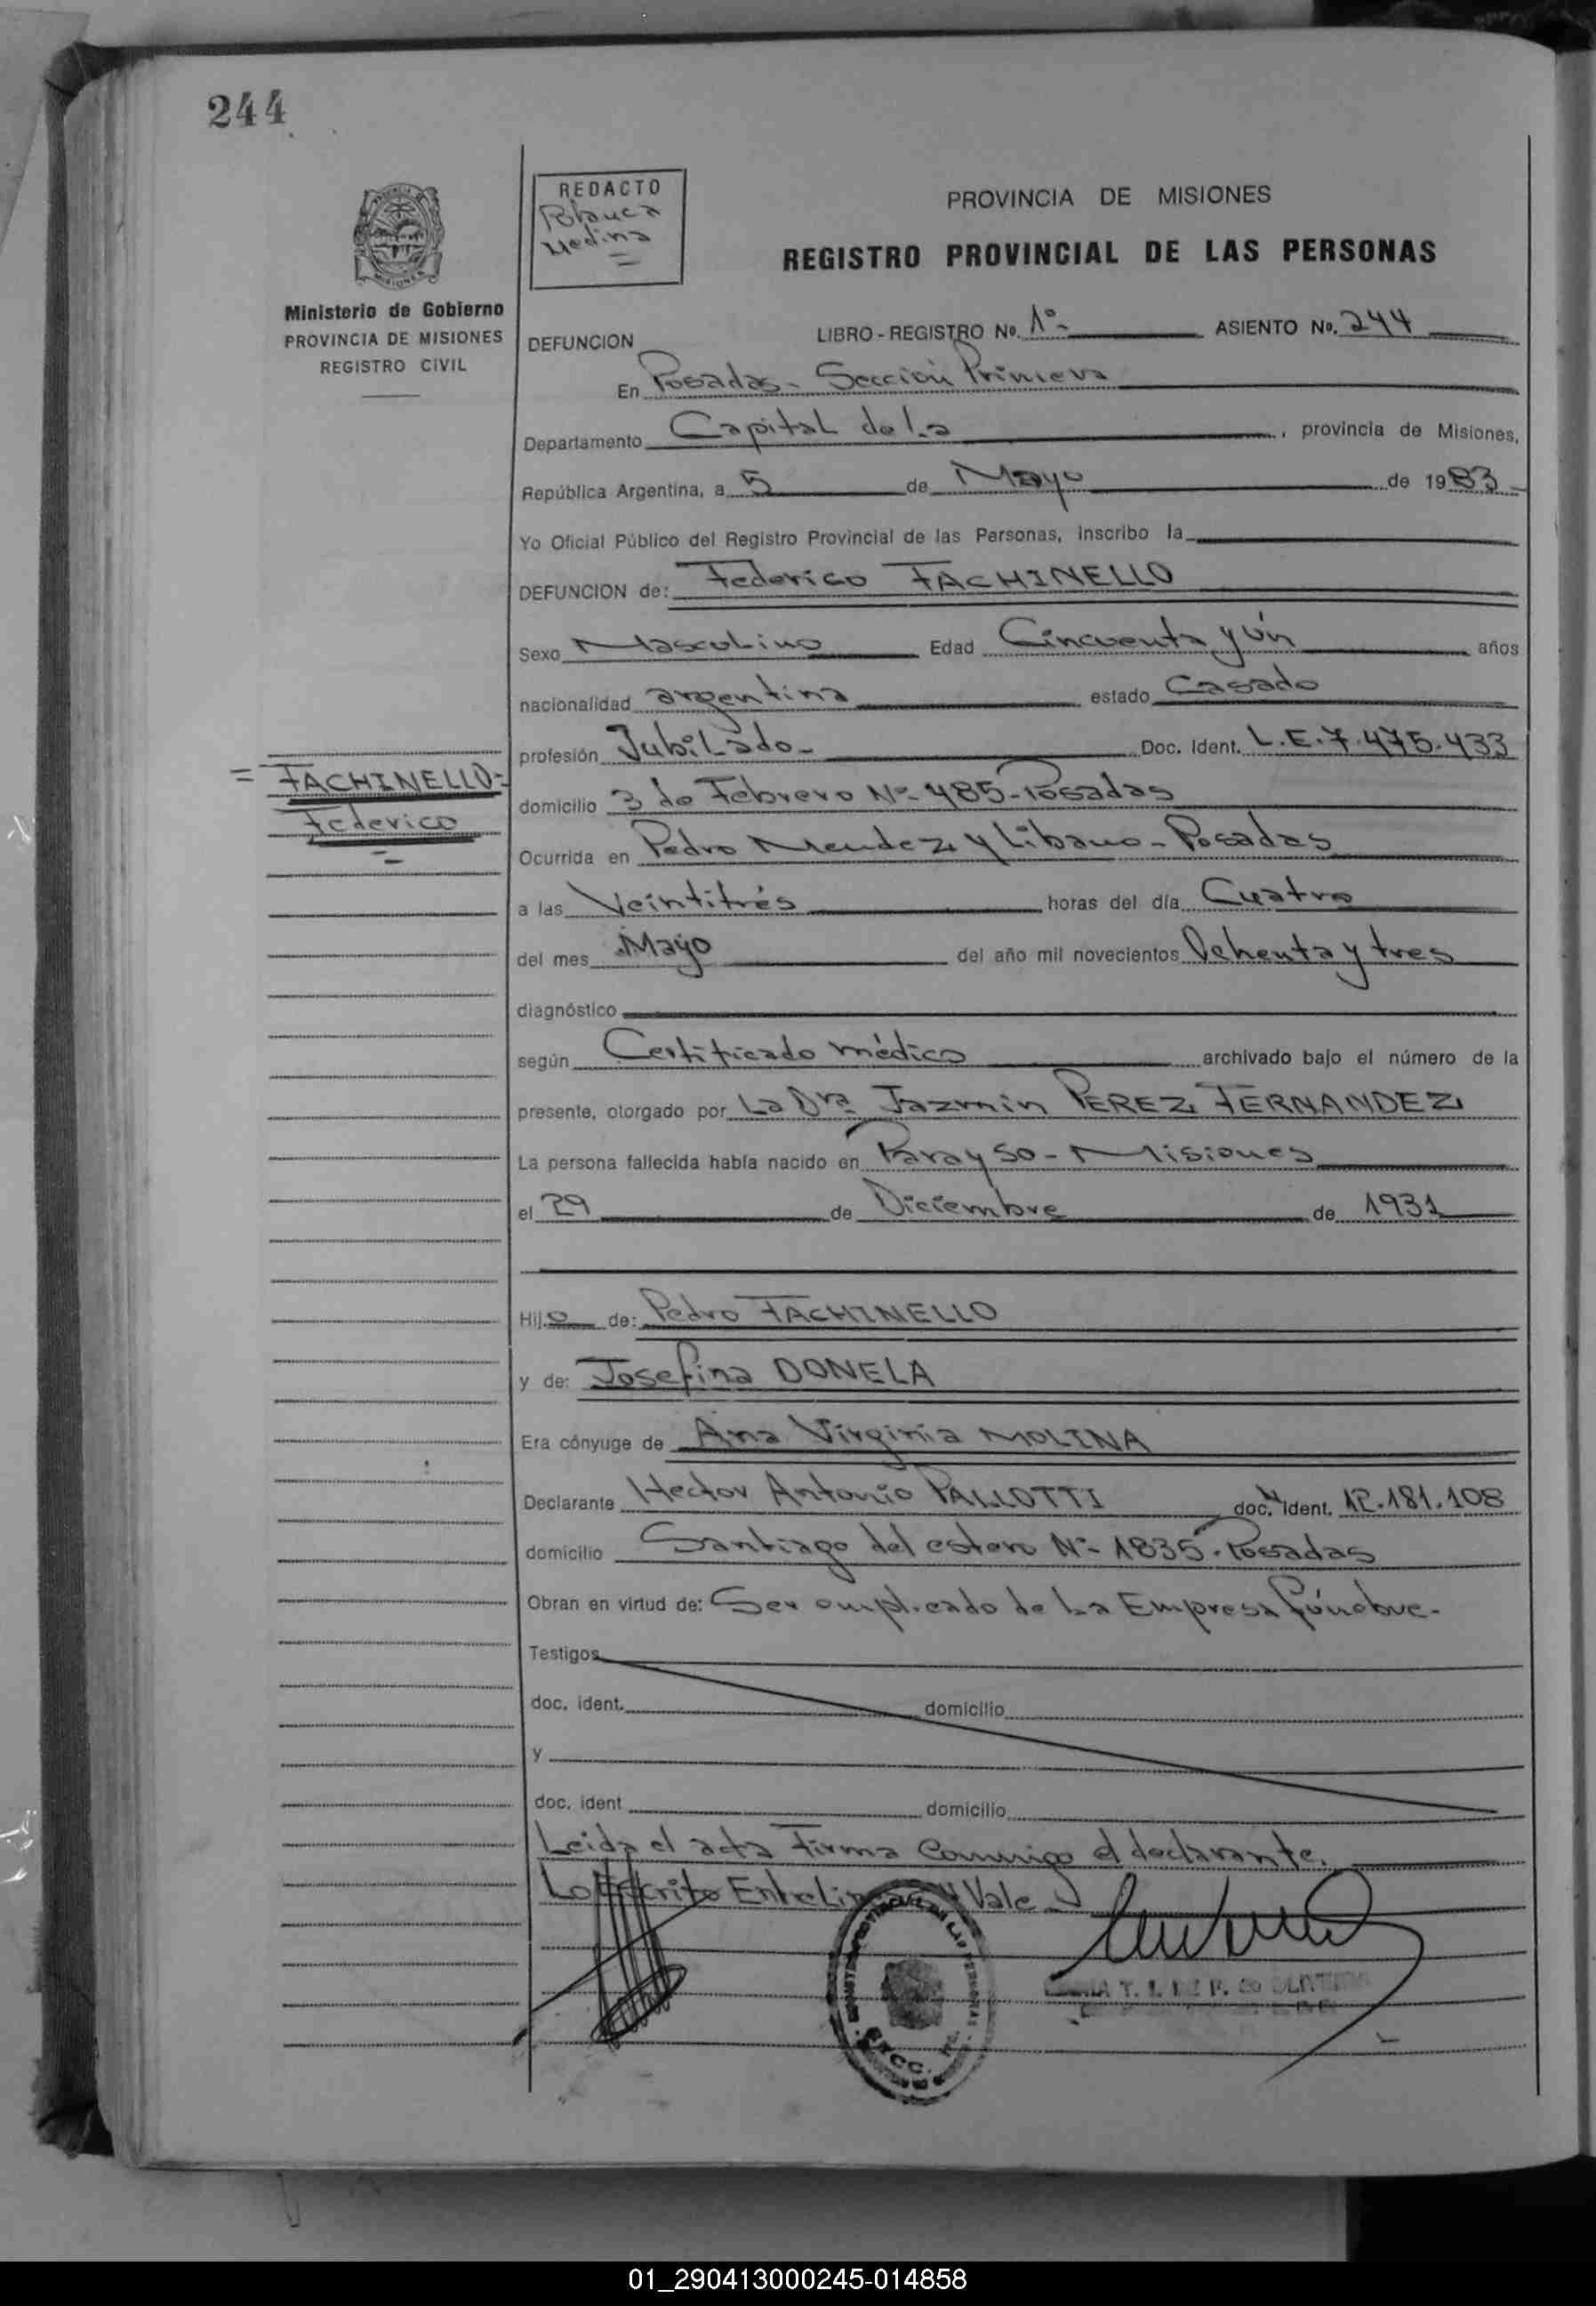 244
REDACTO
Blanca
Medina
=
PROVINCIA DE MISIONES
REGISTRO PROVINCIAL DE LAS PERSONAS
Ministerio de Gobierno
PROVINCIA DE MISIONES
REGISTRO CIVIL
DEFUNCION LIBRO - REGISTRO No. 1º- ASIENTO No. 244
En Posadas - Sección Primera
Departamento Capital de la , provincia de Misiones,
República Argentina, a 5 de Mayo de 1983-
Yo Oficial Público del Registro Provincial de las Personas, inscribo la
DEFUNCION de: Federico FACHINELLO
Sexo Masculino Edad Cincuenta y ún años
nacionalidad argentina estado Casado
profesión Jubilado- Doc. Ident. L.E.7.475.433
= FACHINELLO=
Federico
=
domicilio 3 de Febrero Nº- 485-Posadas
Ocurrida en Pedro Mendez y Libano - Posadas
a las Veintitrés horas del día Cuatro
del mes Mayo del año mil novecientos Ochenta y tres
diagnóstico
según Certificado médico archivado bajo el número de la
presente, otorgado por La Dra Jazmín PEREZ FERNANDEZ
La persona fallecida había nacido en Parayso - Misiones
el 29 de Diciembre de 1931
Hijo de: Pedro FACHINELLO
y de: Josefina DONELA
Era cónyuge de Ana Virginia MOLINA
Declarante Hector Antonio PALLOTTI doc. Ident. 12.181.108
domicilio Santiago del estero Nº- 1835-Posadas
Obran en virtud de: Ser empleado de La Empresa fúnebre-
Testigos
doc. ident. domicilio
y
doc. ident domicilio
Leida el acta Firma Conmigo el declarante.
Lo Escrito Entrelineas Vale
01_290413000245-014858